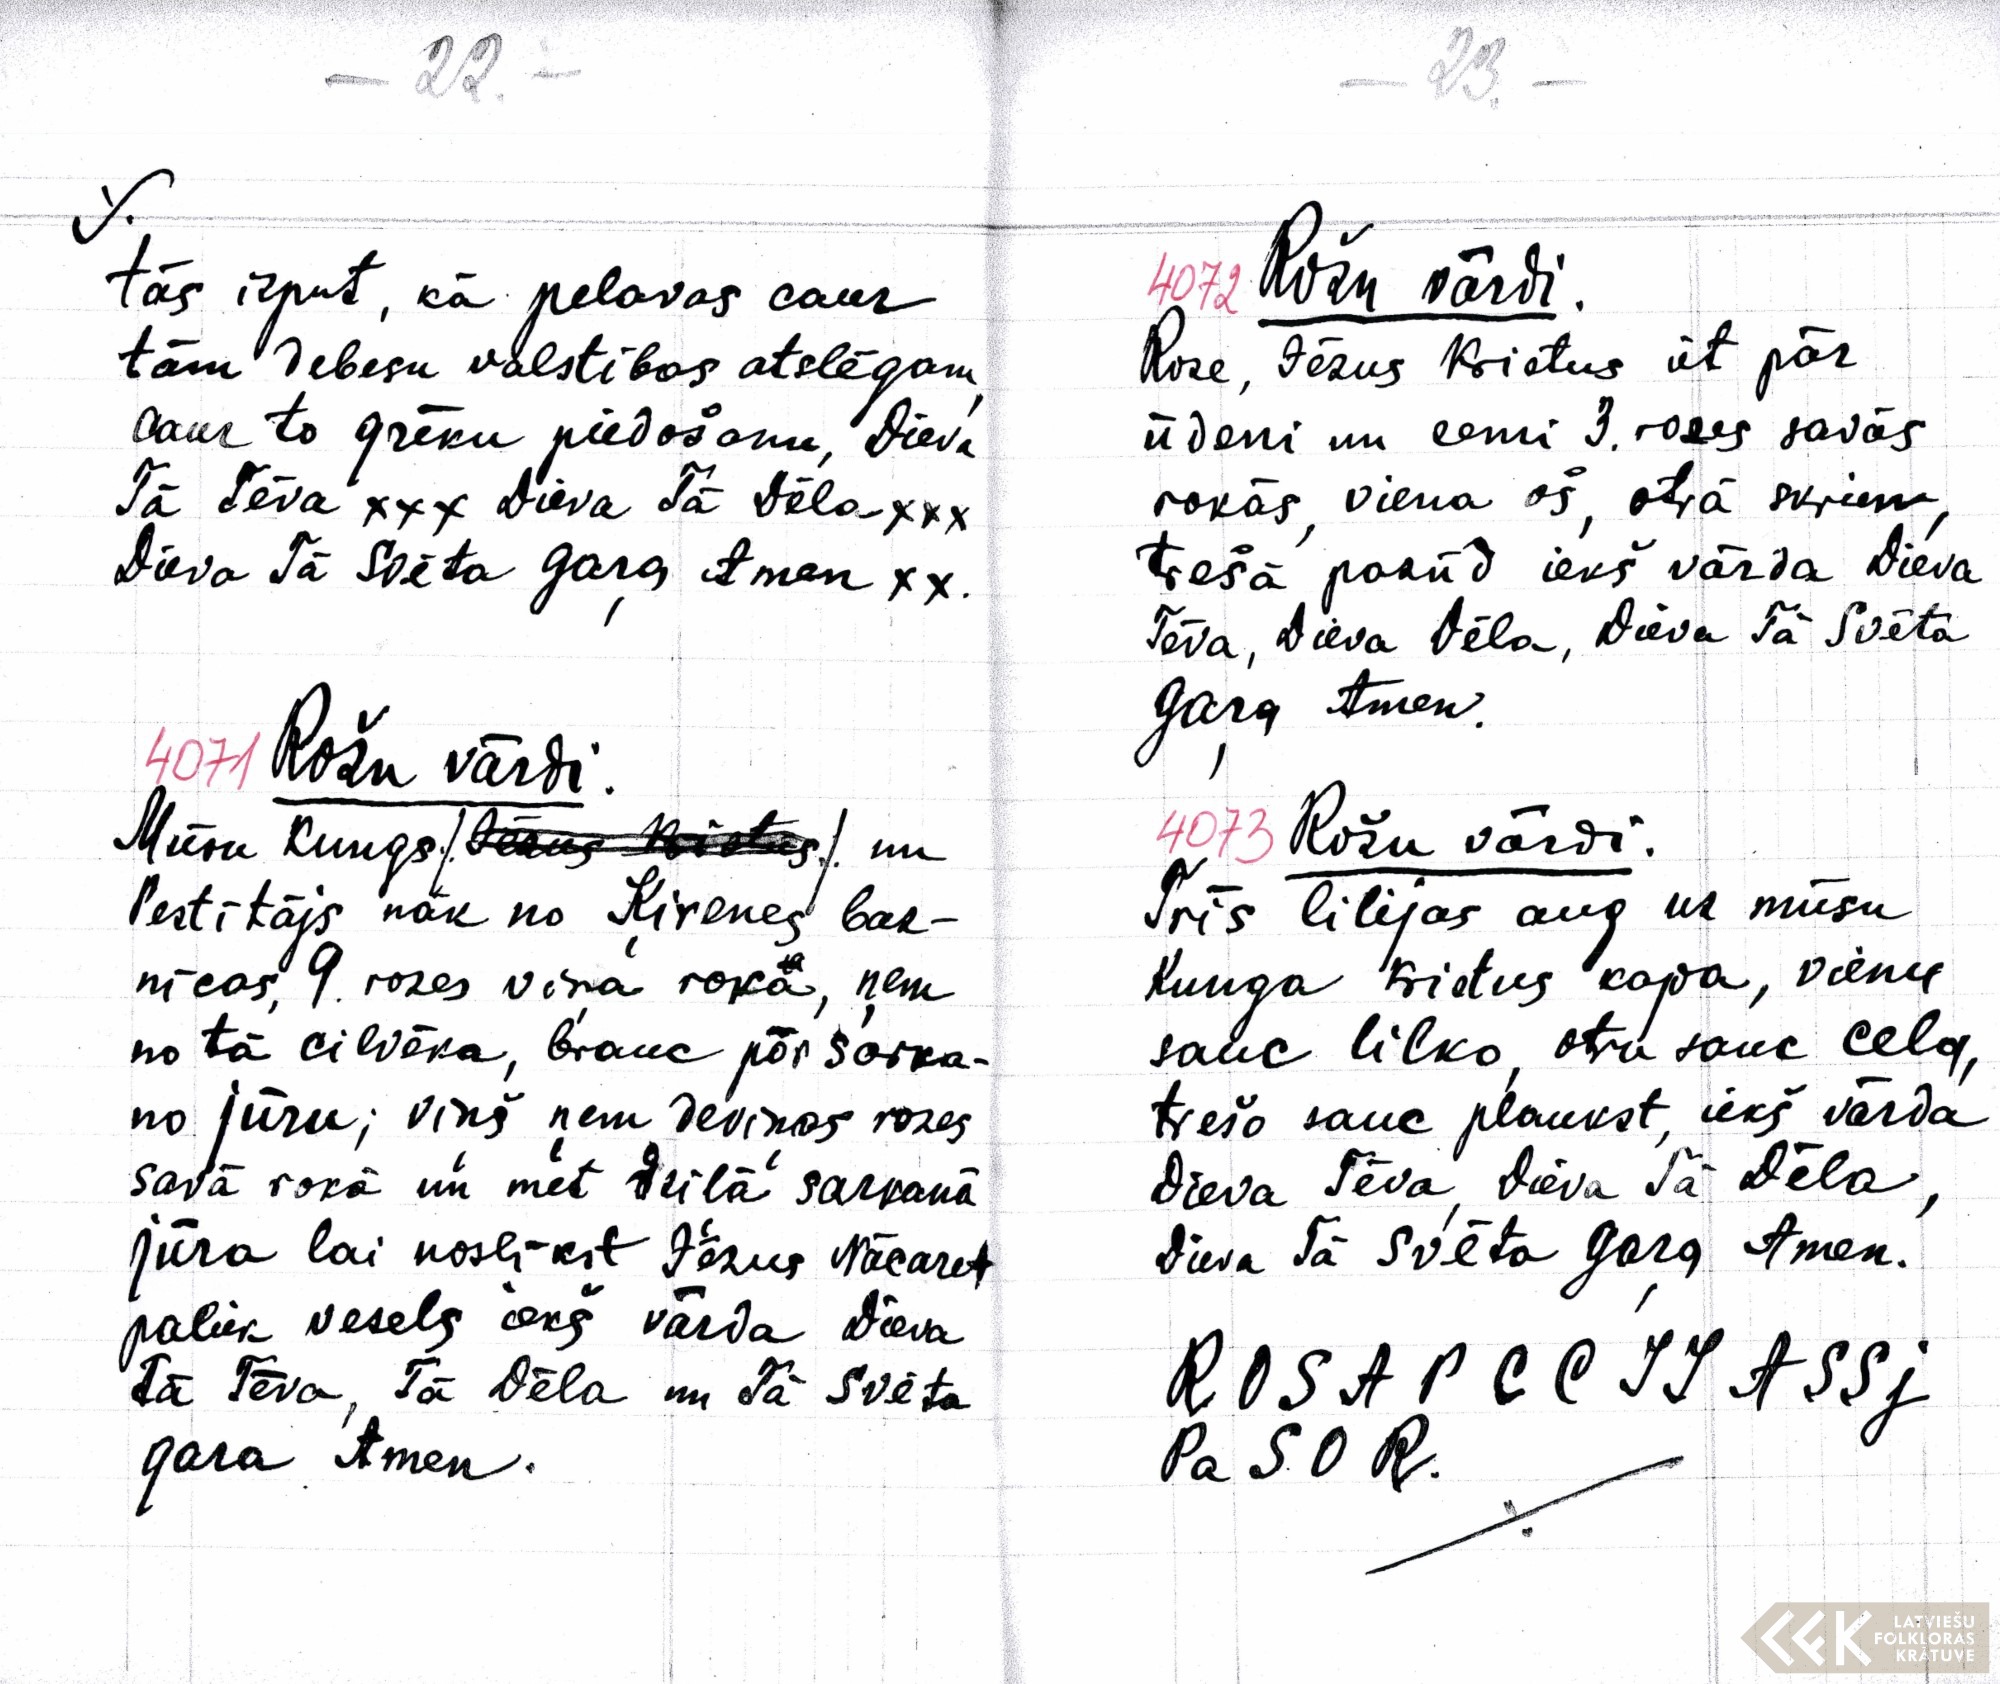 — 22. —
tās izput, kā pelavas caur
tām debesu valstības atslēgam,
caur to grēku piedošanu, Dieva
Tā Tēva xxx Dieva Tā Dēla xxx
Dieva Tā Svēta Gaŗa Amen xx.
4071 Rožu vārdi.
Mūsu Kungs /. Jēzus Kristus ./ un
Pestītājs nāk no Ķirenes baz-
nīcas, 9. rozes viņa rokā, ņem
no tā cilvēka, brauc pār sarka-
no jūru; viņš ņem deviņas rozes
savā rokā un met dziļā sarkanā
jūra lai noslīkst Jēzus Nācaret
paliek vesels iekš vārda Dieva
Tā Tēva, Tā Dēla un Tā Svēta
gara Amen.
— 23. —
4072 Rožu vārdi.
Roze, Jēzus Kristus iet pār
ūdeni un ņemi 3. rozes savās
rokās, viena oš, otrā skrien,
trešā pazūd iekš vārda Dieva
Tēva, Dieva Dēla, Dieva Tā Svēta
Gaŗa Amen.
4073 Rožu vārdi.
Trīs lilijas aug uz mūsu
Kunga Kristus kapa, vienu
sauc lilko, otru sauc cela,
trešo sauc plaukst, iekš vārda
Dieva Tēva, Dieva Tā Dēla,
Dieva Tā Svēta Gaŗa Amen.
R O S A P C C I I A S S j
Pa S O R.
LATVIEŠU
FOLKLORAS
KRĀTUVE